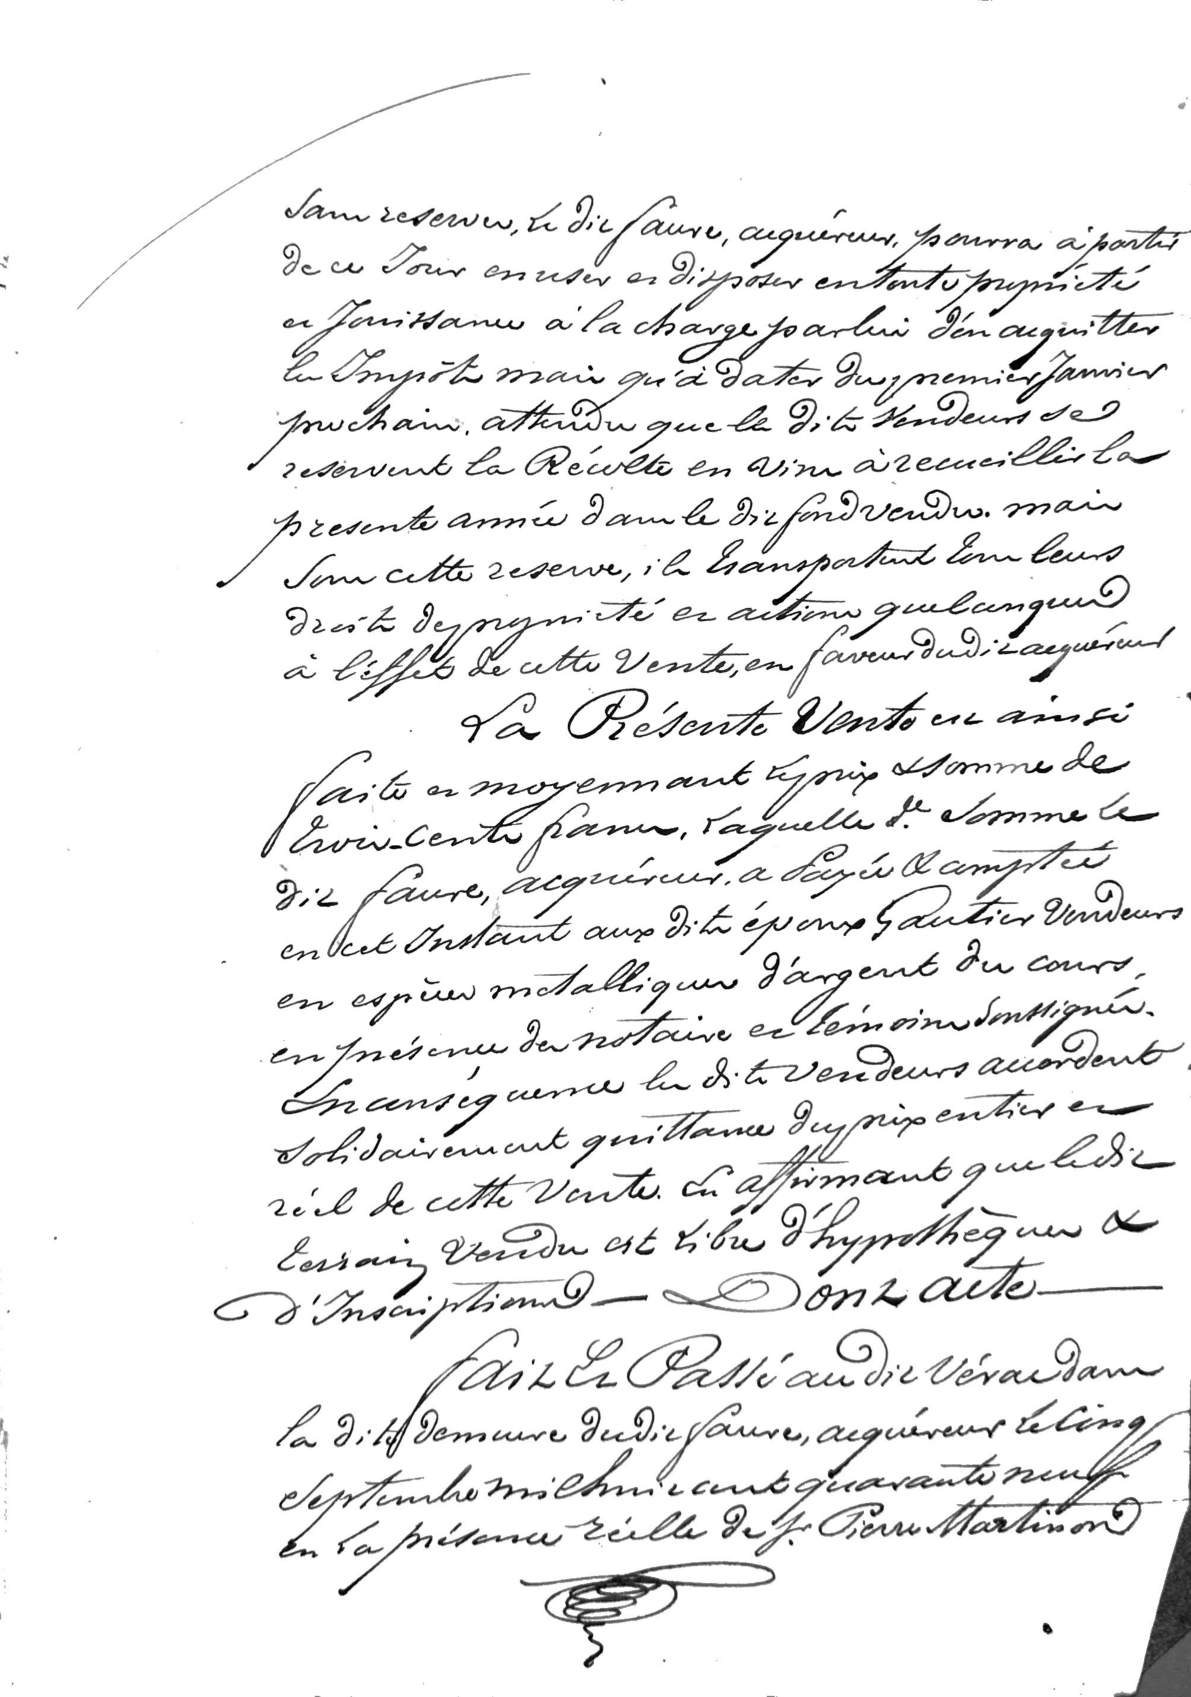 Sans reserves, Le dit faure, acquéreur, pourra à partir
de ce Jour en user et disposer en toute propriété
et Jouissance à la charge par lui d'en acquitter
les Impôts mais qu'à dater du premier Janvier
prochain. attendu que les dits Vendeurs se
reservent la Récolte en vins à recueillir la
presente année dans le dit fond vendu. mais
Sous cette reserve, ils transportent tous leurs
droits de propriété et actions quelconques
à l'éffet de cette Vente, en faveur du dit acquéreur
La Présente Vente est ainsi
faite et moyennant Le prix & somme de
trois-Cents francs, Laquelle de. Somme Le
dit faure, acquéreur. a Payée & comptée
en cet Instant aux dits époux Gautier Vendeurs
en espèces metalliques d'argent du cours,
en présence des notaire et témoins soussignés.
En conséquence les dits Vendeurs accordent
solidairement quittance du prix entier et
réel de cette Vente. En affirmant que le dit
terrain Vendu est Libre d'hypothèques &
d'Inscriptions — Dont acte —
fait Et Passé au dit Vérac dans
la dite demeure du dit faure, acquéreur Le Cinq
Septembre mil huit cent quarante neuf
en La présence réelle de sr. Pierre Martinon